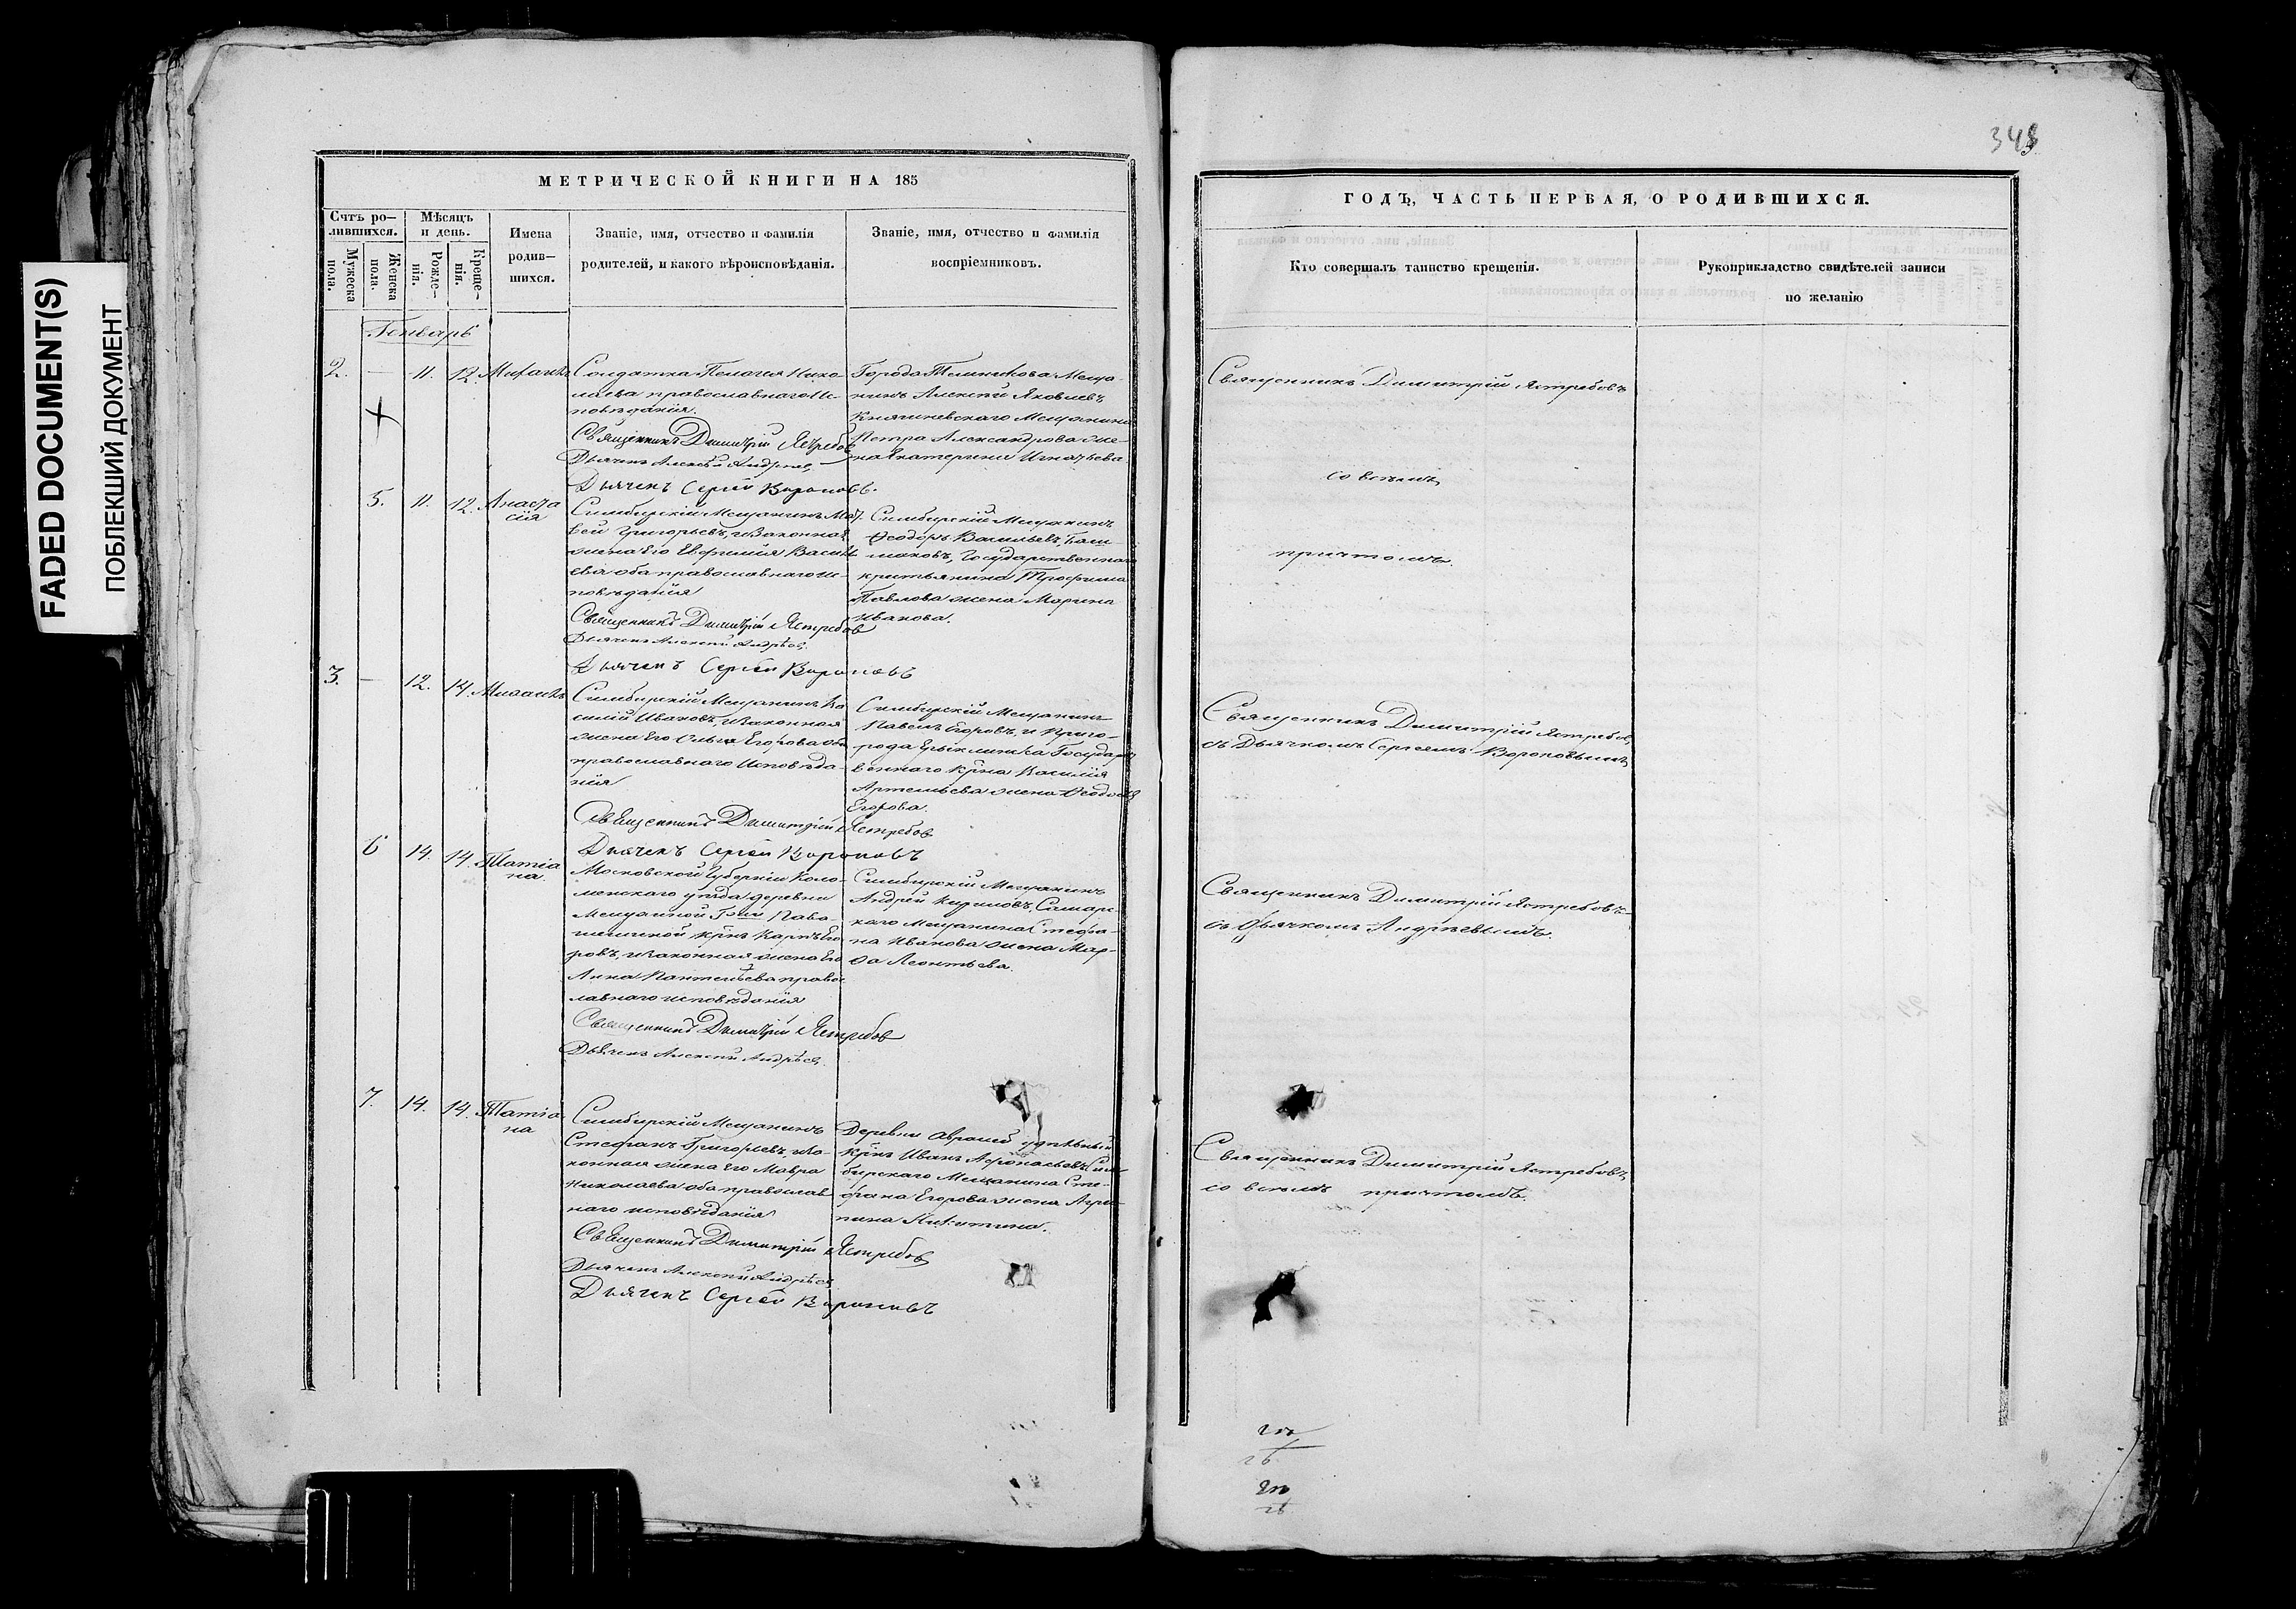 FADED DOCUMENT(S)
ПОБЛЕКШИЙ ДОКУМЕНТ
МЕТРИЧЕСКОЙ КНИГИ НА 185
Счтъ ро-
дившихся.
Мужеска
пола.
Женска
пола.
Мѣсяцъ
и день.
Рожде-
нія.
Креще-
нія.
Имена
родив-
шихся.
Званіе, имя, отчество и фамилія
родителей, и какого вѣроисповѣданія.
Званіе, имя, отчество и фамилія
воспріемниковъ.
Генварь
2. — 11. 12. Михаилъ
Солдатка Пелагия Нико-
лаева православнаго Ис-
повѣданія.
Священникъ Димитрій Ястребов
Дьячекъ Алексѣй Андреев
Дьячекъ Сергей Вороновъ.
Города Темникова Меща-
нинъ Алексей Яковлевъ,
Княгиневскаго Мещанина
Петра Александрова же-
на Екатерина Игнатьева
5. 11. 12. Анаста
сія
Симбирскій Мещанинъ Мат
вей Григорьевъ, и Законная
жена Его Евфимия Василь
ева оба православнаго Ис-
повѣданія
Священникъ Димитрій Ястребов
Дьячекъ Алексей Андреев.
Дьячекъ Сергей Вороновъ
Симбирскій Мещанинъ
Ѳеодоръ Васильевъ Баш
маковъ, Государственнаго
критьянина Трофима
Павлова жена Марина
Иванова.
3. — 12. 14.
Симбирскій Мещанинъ Ва
силій Ивановъ, и Законная
жена Его Ольга Егорова оба
православнаго Исповѣда-
нія
Священникъ Димитрій Ястребов
Дьячекъ Сергей Вороновъ
Симбирскій Мещанинъ
Павелъ Егоровъ, и Приго-
рода Ерыклинска Государст
веннаго крна Василія
Артемьева жена
Егорова.
6 14. 14. Татіа
на.
Московской Губерніи Коло-
менскаго уѣзда деревни
Мещаиной Гжи
крнъ Карпъ Его
ровъ, и законная жена Его
Анна Пантелѣева правос
лавнаго исповѣданія
Священникъ Димитрій Ястребов
Дьячекъ Алексей Андреев
Симбирскій Мещанинъ
Андрей Кириловъ, Самарс-
каго Мещанина Стефа-
на Иванова жена Мар-
ѳа Леонтьева.
7. 14. 14. Татіа
на
Симбирскій Мещанинъ
Стефанъ Григорьевъ, и За-
конная жена Его Мавра
Николаева оба православ
наго исповѣданія
Священникъ Димитрій Ястребов
Дьячекъ Алексей Андреев
Дьячекъ Сергей Вороновъ
Деревни Авралей удѣльный
крнъ Иванъ Афонасьевъ, Сим
бирскаго Мещанина Сте-
фана Егорова жена Агри-
пина Никитина.
ГОДЪ, ЧАСТЬ ПЕРВАЯ, О РОДИВШИХСЯ.
Кто совершалъ таинство крещенія.
Рукоприкладство свидѣтелей записи
по желанію
Священникъ Димитрій Ястребовъ
со всѣмъ
причтомъ.
Священникъ Димитрій Ястребовъ,
съ Дьячкомъ Сергеемъ Вороновымъ
Священникъ Димитрій Ястребовъ
съ дьячкомъ Андреевымъ.
Священникъ Димитрій Ястребовъ,
со всѣмъ причтомъ.